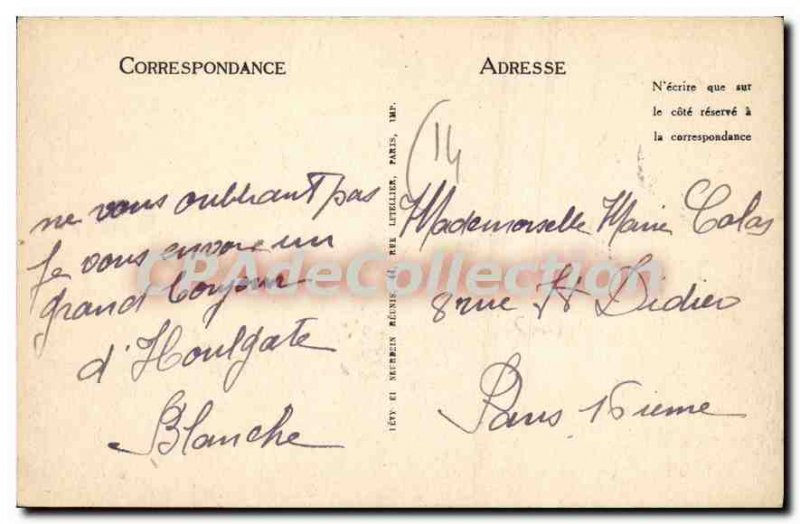 CORRESPONDANCE
ne vous oubliant pas
Je vous envoie un
grand bonjour
d'Houlgate
Blanche
LÉVY ET NEURDEIN RÉUNIS, 44, RUE LETELLIER, PARIS, IMP.
ADRESSE
N'écrire que sur
le côté réservé à
la correspondance
14
Mademoiselle Marie Colas
8 rue St Didier
Paris 16ieme
CPAdeCollection